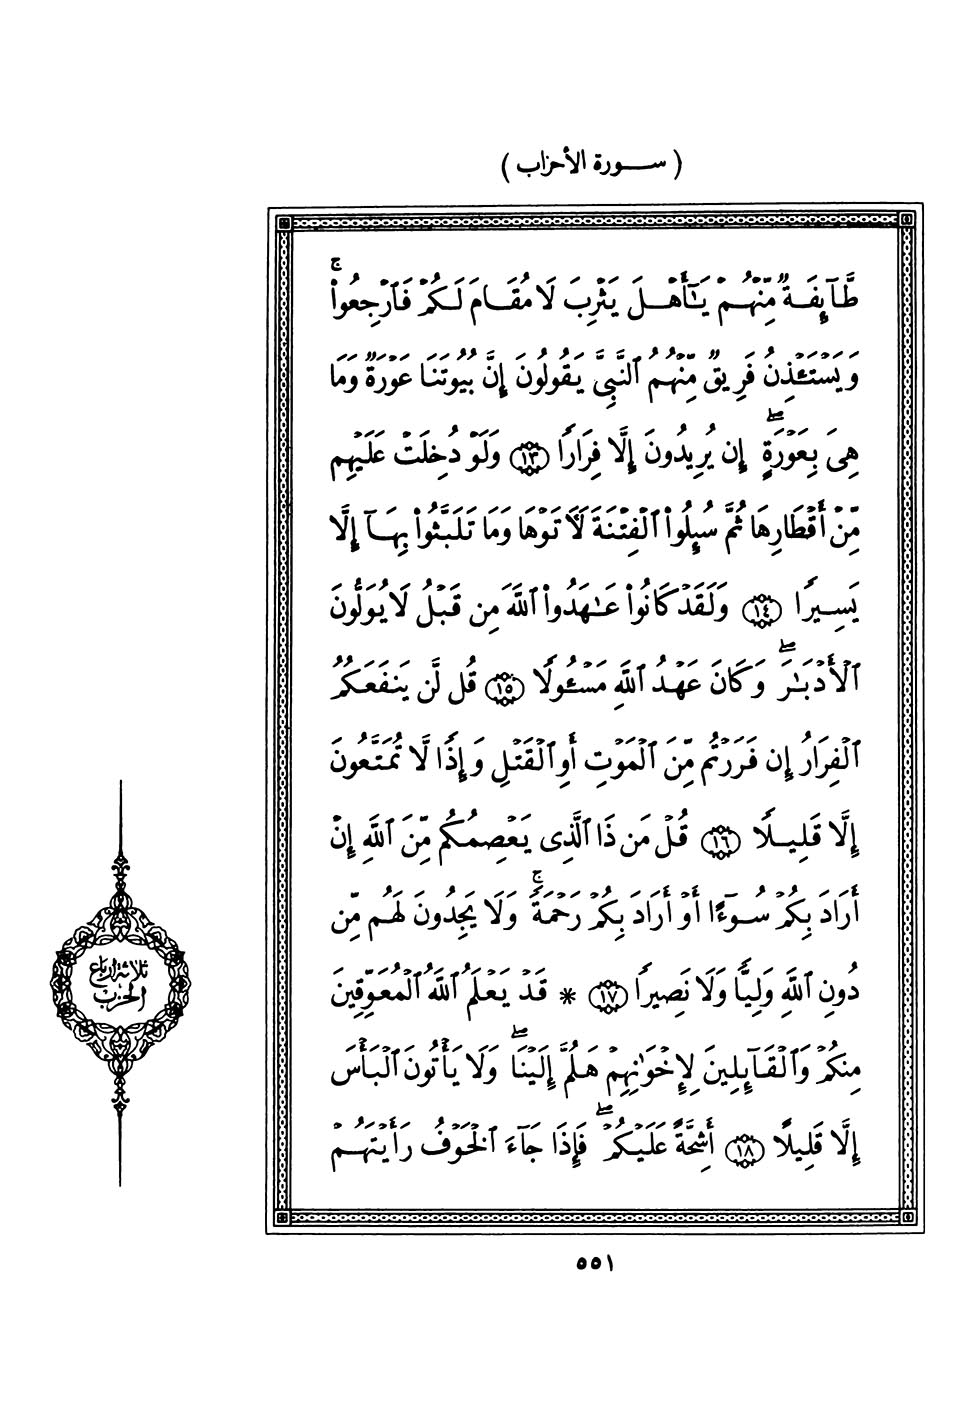 ( ســورة الأحزاب )
طَّآئِفَةٌ مِّنْهُمْ يَـٰٓأَهْلَ يَثْرِبَ لَا مُقَامَ لَكُمْ فَٱرْجِعُوا۟ ۚ
وَيَسْتَـْٔذِنُ فَرِيقٌ مِّنْهُمُ ٱلنَّبِىَّ يَقُولُونَ إِنَّ بُيُوتَنَا عَوْرَةٌ وَمَا
هِىَ بِعَوْرَةٍ ۖ إِن يُرِيدُونَ إِلَّا فِرَارًا ١٣ وَلَوْ دُخِلَتْ عَلَيْهِم
مِّنْ أَقْطَارِهَا ثُمَّ سُئِلُوا۟ ٱلْفِتْنَةَ لَـَٔاتَوْهَا وَمَا تَلَبَّثُوا۟ بِهَآ إِلَّا
يَسِيرًا ١٤ وَلَقَدْ كَانُوا۟ عَـٰهَدُوا۟ ٱللَّهَ مِن قَبْلُ لَا يُوَلُّونَ
ٱلْأَدْبَـٰرَ ۖ وَكَانَ عَهْدُ ٱللَّهِ مَسْـُٔولًا ١٥ قُل لَّن يَنفَعَكُمُ
ٱلْفِرَارُ إِن فَرَرْتُم مِّنَ ٱلْمَوْتِ أَوِ ٱلْقَتْلِ وَإِذًا لَّا تُمَتَّعُونَ
إِلَّا قَلِيلًا ١٦ قُلْ مَن ذَا ٱلَّذِى يَعْصِمُكُم مِّنَ ٱللَّهِ إِنْ
أَرَادَ بِكُمْ سُوٓءًا أَوْ أَرَادَ بِكُمْ رَحْمَةً ۚ وَلَا يَجِدُونَ لَهُم مِّن
دُونِ ٱللَّهِ وَلِيًّا وَلَا نَصِيرًا ١٧ * قَدْ يَعْلَمُ ٱللَّهُ ٱلْمُعَوِّقِينَ
مِنكُمْ وَٱلْقَآئِلِينَ لِإِخْوَٰنِهِمْ هَلُمَّ إِلَيْنَا ۖ وَلَا يَأْتُونَ ٱلْبَأْسَ
إِلَّا قَلِيلًا ١٨ أَشِحَّةً عَلَيْكُمْ ۖ فَإِذَا جَآءَ ٱلْخَوْفُ رَأَيْتَهُمْ
ثلاثة أرباع
الحزب
٥٥١